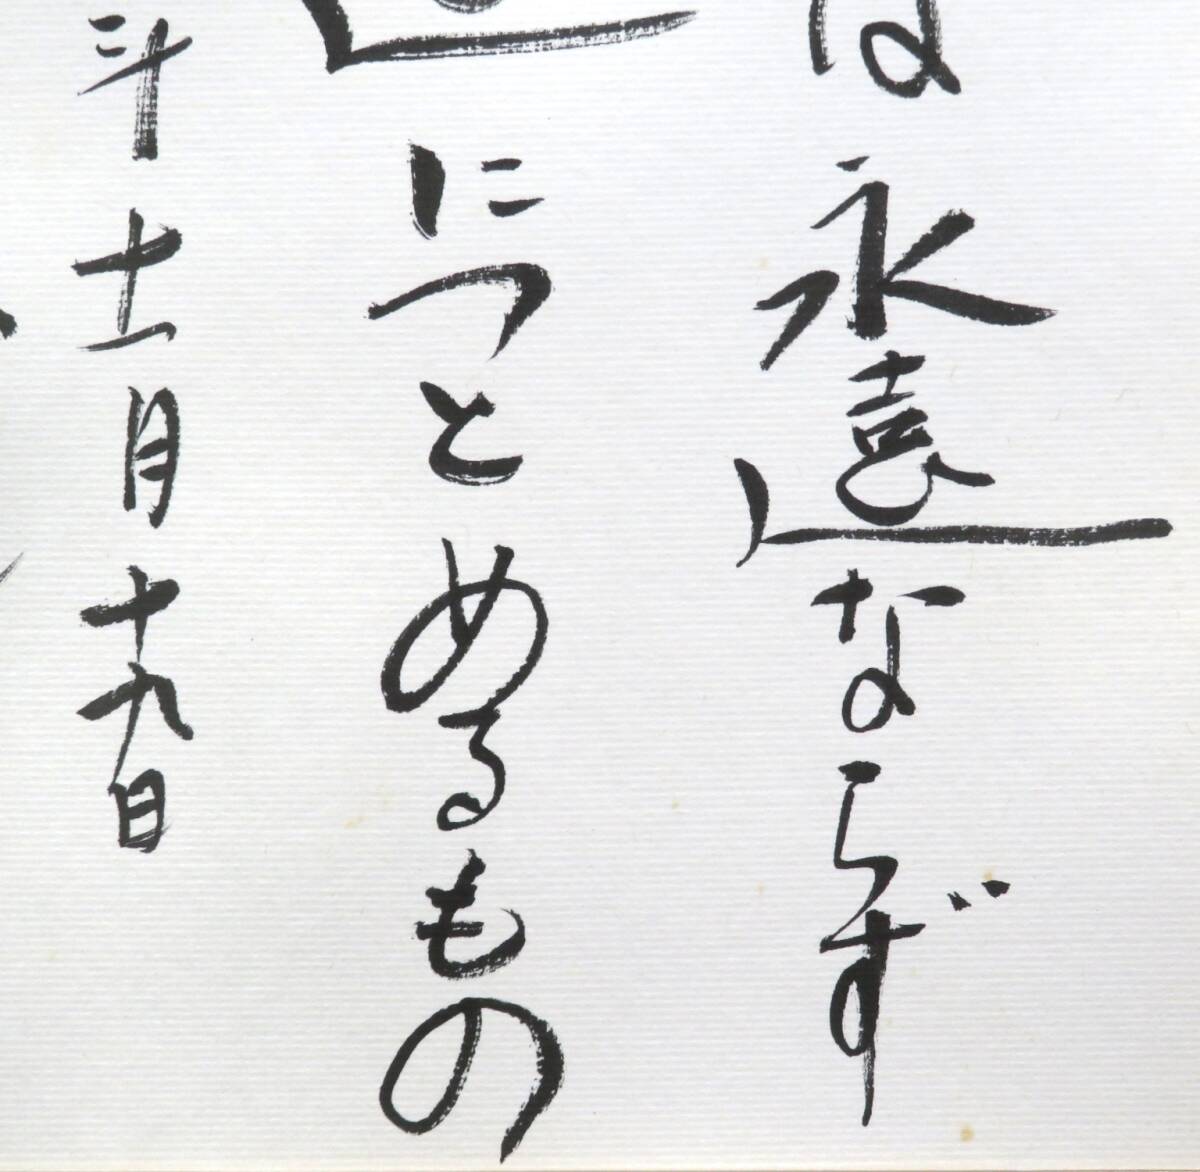 は永遠ならず
につとめるもの
十一月十九日